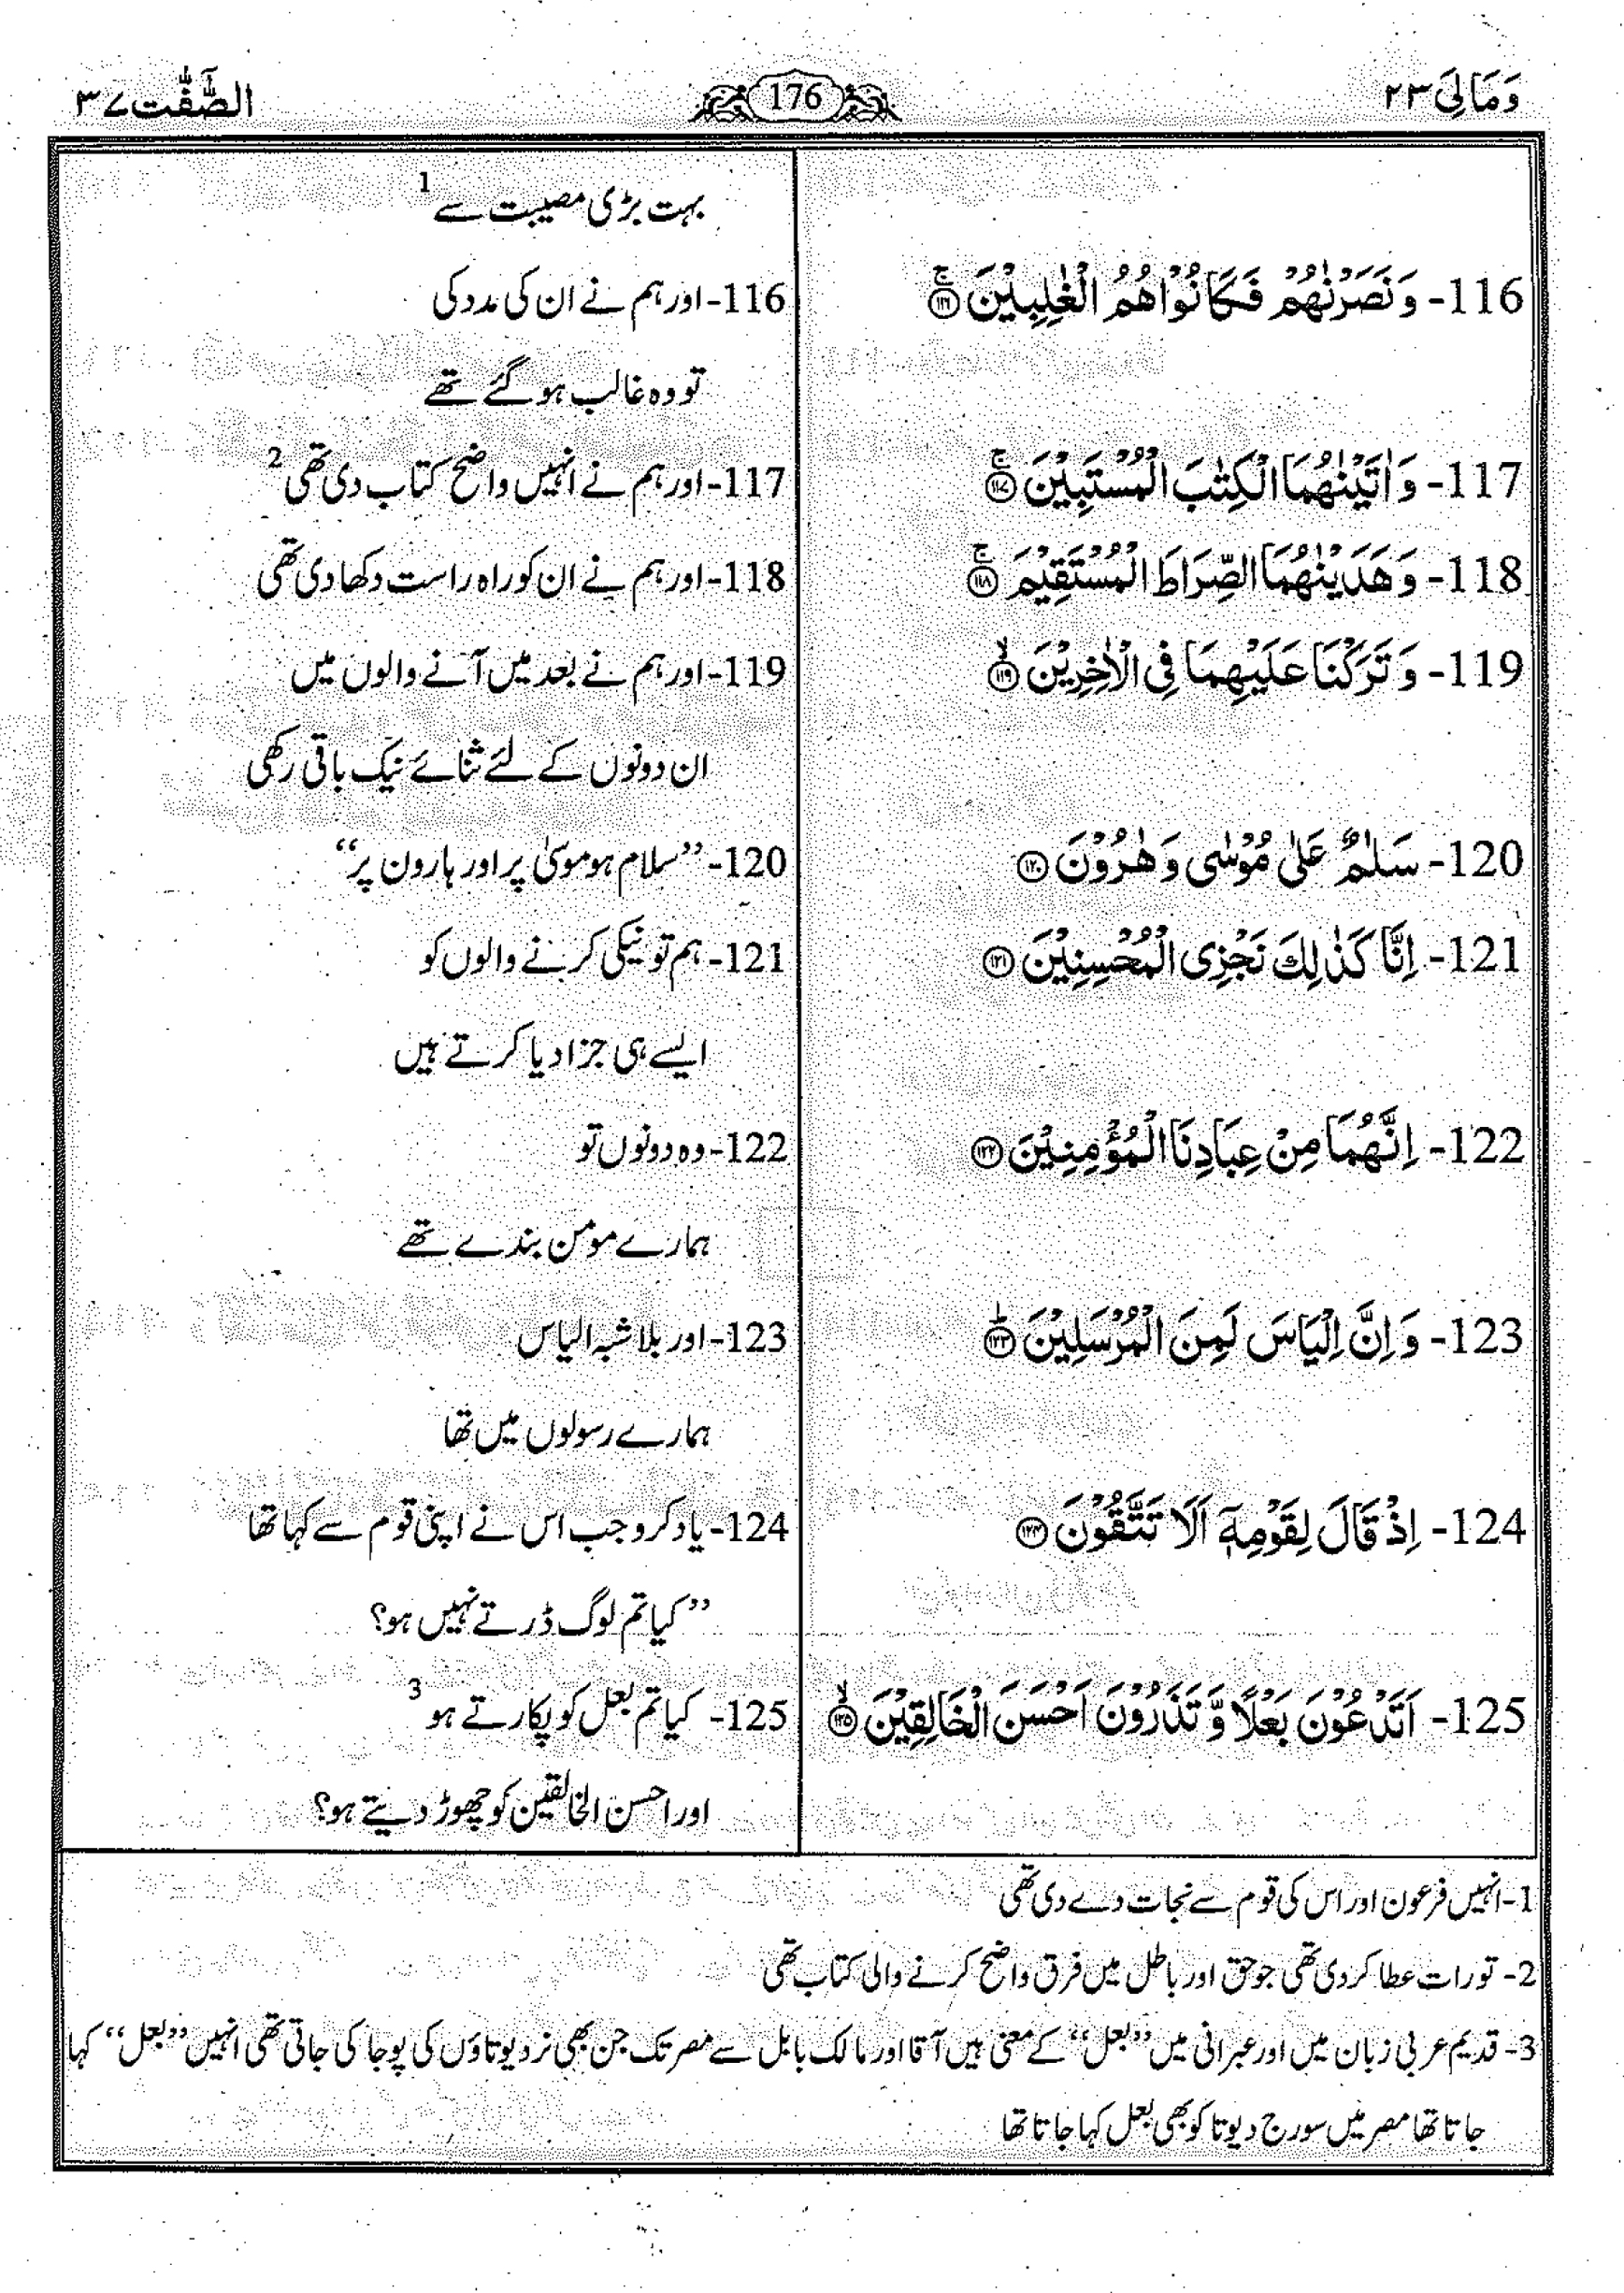 وَمَالِیَ ۲۳
176
الصّٰٓفّٰت ۳۷
بہت بڑی مصیبت سے 1
116- وَ نَصَرْنٰهُمْ فَكَانُوْا هُمُ الْغٰلِبِيْنَ ۚ ﴿۱۱۶﴾
116- اور ہم نے ان کی مدد کی
تو وہ غالب ہو گئے تھے
117- وَ اٰتَيْنٰهُمَا الْكِتٰبَ الْمُسْتَبِيْنَ ۚ ﴿۱۱۷﴾
117- اور ہم نے انہیں واضح کتاب دی تھی 2
118- وَ هَدَيْنٰهُمَا الصِّرَاطَ الْمُسْتَقِيْمَ ۚ ﴿۱۱۸﴾
118- اور ہم نے ان کو راہ راست دکھا دی تھی
119- وَ تَرَكْنَا عَلَيْهِمَا فِى الْاٰخِرِيْنَ ۙ ﴿۱۱۹﴾
119- اور ہم نے بعد میں آنے والوں میں
ان دونوں کے لئے ثنائے نیک باقی رکھی
120- سَلٰمٌ عَلٰى مُوْسٰى وَ هٰرُوْنَ ﴿۱۲۰﴾
120- ’’سلام ہو موسیٰ پر اور ہارون پر‘‘
121- اِنَّا كَذٰلِكَ نَجْزِى الْمُحْسِنِيْنَ ﴿۱۲۱﴾
121- ہم تو نیکی کرنے والوں کو
ایسے ہی جزا دیا کرتے ہیں
122- اِنَّهُمَا مِنْ عِبَادِنَا الْمُؤْمِنِيْنَ ﴿۱۲۲﴾
122- وہ دونوں تو
ہمارے مومن بندے تھے
123- وَ اِنَّ اِلْيَاسَ لَمِنَ الْمُرْسَلِيْنَ ؕ ﴿۱۲۳﴾
123- اور بلا شبہ الیاس
ہمارے رسولوں میں تھا
124- اِذْ قَالَ لِقَوْمِهٖۤ اَلَا تَتَّقُوْنَ ﴿۱۲۴﴾
124- یاد کرو جب اس نے اپنی قوم سے کہا تھا
’’کیا تم لوگ ڈرتے نہیں ہو؟
125- اَتَدْعُوْنَ بَعْلًا وَّ تَذَرُوْنَ اَحْسَنَ الْخَالِقِيْنَ ۙ ﴿۱۲۵﴾
125- کیا تم بعل کو پکارتے ہو 3
اور احسن الخالقین کو چھوڑ دیتے ہو؟
1- انہیں فرعون اور اس کی قوم سے نجات دے دی تھی
2- تورات عطا کر دی تھی جو حق اور باطل میں فرق واضح کرنے والی کتاب تھی
3- قدیم عربی زبان میں اور عبرانی میں ’’بعل‘‘ کے معنی ہیں آقا اور مالک بابل سے مصر تک جن بھی نر دیوتاؤں کی پوجا کی جاتی تھی انہیں ’’بعل‘‘ کہا
جاتا تھا مصر میں سورج دیوتا کو بھی بعل کہا جاتا تھا